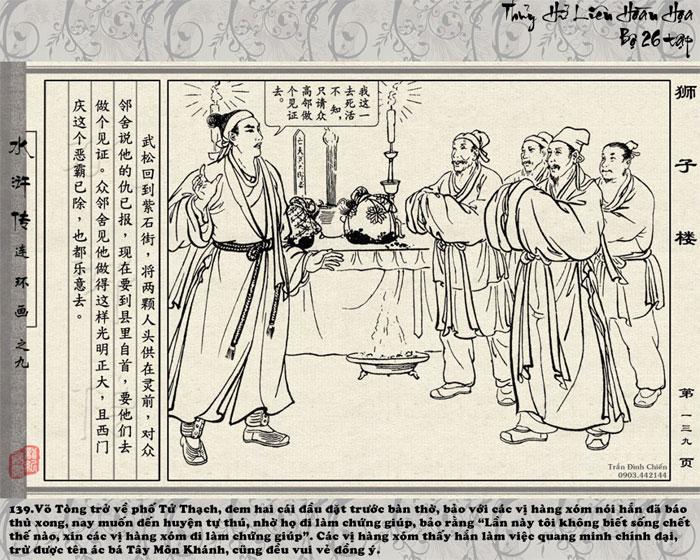 Thủy Hử Liên Hoàn Họa
Bộ 26 tập
狮子楼
我这一
去死活
不知，
只请众
高邻做
个见证
去。
武松回到紫石街，将两颗人头供在灵前，对众
邻舍说他的仇已报，现在要到县里自首，要他们去
做个见证。众邻舍见他做得这样光明正大，且西门
庆这个恶霸已除，也都乐意去。
水浒传连环画之九
第一三九页
Trần Đình Chiến
0903.442144
139.Võ Tòng trở về phố Tử Thạch, đem hai cái đầu đặt trước bàn thờ, bảo với các vị hàng xóm nói hắn đã báo
thù xong, nay muốn đến huyện tự thú, nhờ họ đi làm chứng giúp, bảo rằng “Lần này tôi không biết sống chết
thế nào, xin các vị hàng xóm đi làm chứng giúp”. Các vị hàng xóm thấy hắn làm việc quang minh chính đại,
trừ được tên ác bá Tây Môn Khánh, cũng đều vui vẻ đồng ý.